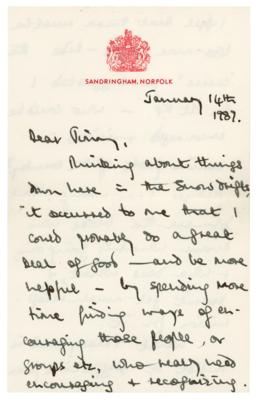 SANDRINGHAM, NORFOLK
January 14th
1987.
Dear Jimmy,
Thinking about things
down here in the Snowdrifts,
it occurred to me that I
could probably do a great
deal of good – and be more
helpful – by spending more
time finding ways of en-
couraging those people, or
groups etc, who really need
encouraging + recognizing.